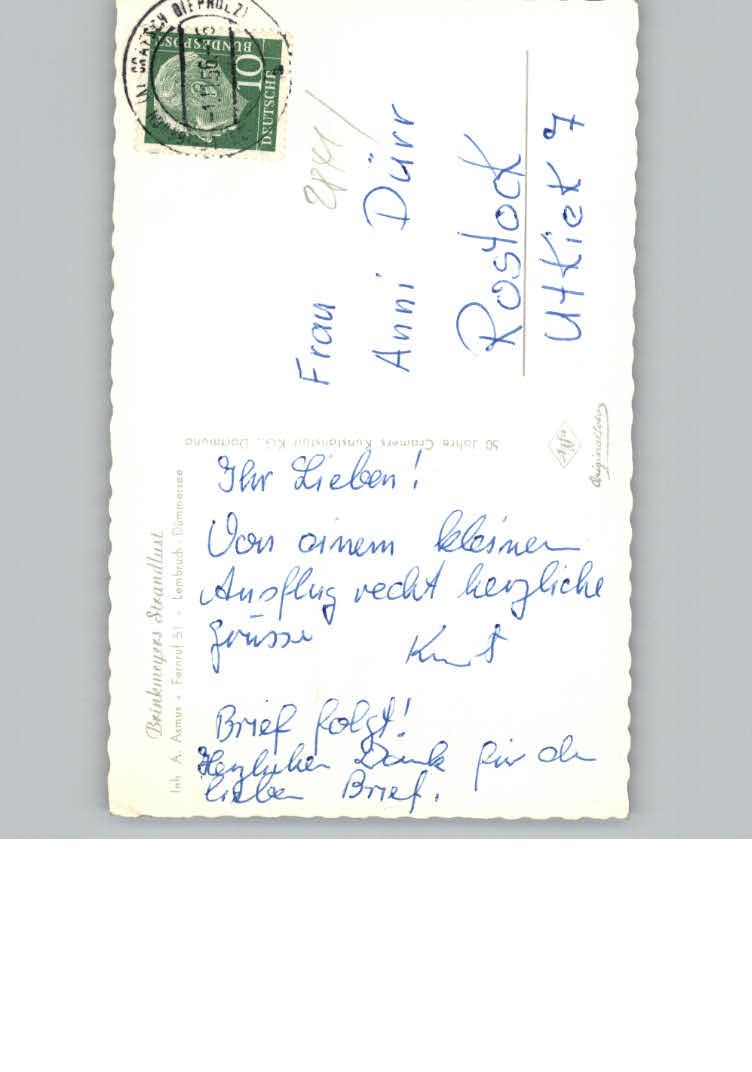 Ihr Lieben!
Von einem kleinen
Ausflug recht herzliche
Grüsse Kurt
Brief folgt!
Herzlichen Dank für den
lieben Brief.
Frau
Anni Dürr
Rostock
Utkiek 7
Brinkmeyers Strandlust
Inh. A. Asmus · Fernruf 51 · Lembruch · Dümmersee
50 Jahre Cramers Kunstanstalt KG., Dortmund
Agfa
Originalfoto
DEUTSCHE
BUNDESPOST
10